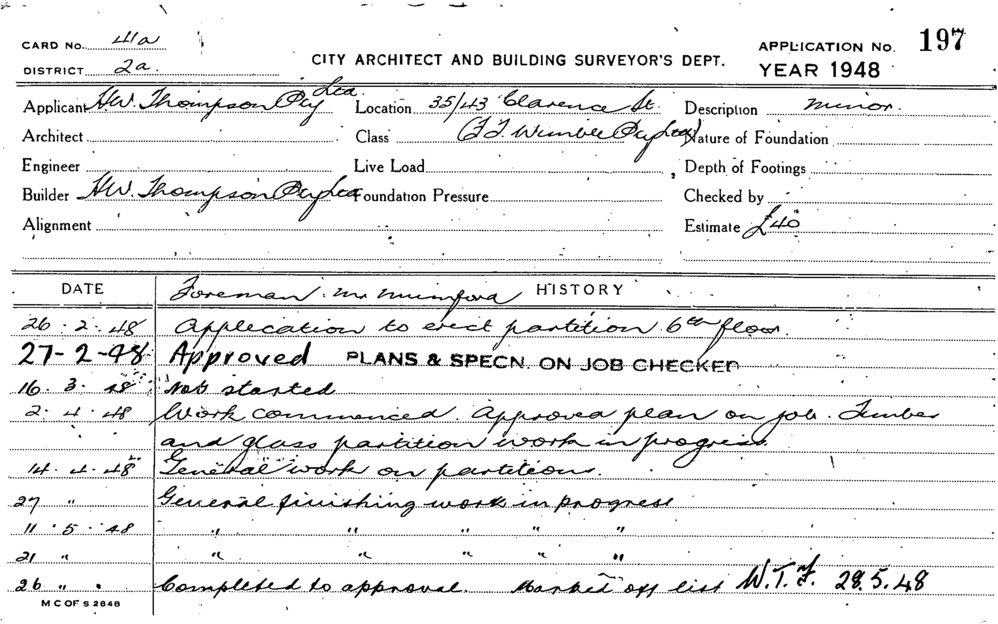 CARD No. 41a
DISTRICT 2a.
CITY ARCHITECT AND BUILDING SURVEYOR'S DEPT.
APPLICATION No. 197
YEAR 1948
Applicant H.W. Thompson Pty Ltd. Location 35/43 Clarence St. Description Minor.
Architect Class (F.T. Wimble Pty Ltd) Nature of Foundation
Engineer Live Load Depth of Footings
Builder H.W. Thompson Pty Ltd Foundation Pressure Checked by
Alignment Estimate £40
DATE Foreman. Mr Mumford HISTORY
26.2.48 Application to erect partition 6th floor.
27-2-48 Approved PLANS & SPECN. ON JOB CHECKED
16.3.48 Not started
2.4.48 Work commenced. Approved plan on job. Timber
and glass partition work in progress.
14.4.48 General work on partitions.
27 " General finishing work in progress
11.5.48 " " " " "
21 " " " " "
26 " . Completed to approval. Marked off list W.T.F. 28.5.48
M C OF S 2848